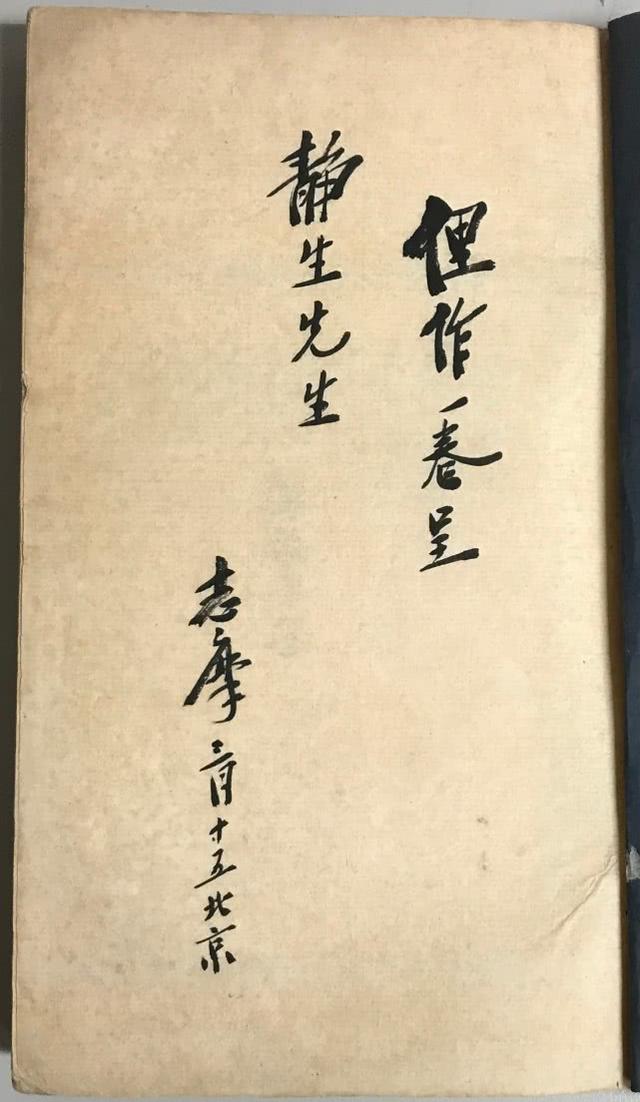 俚作一卷呈
静生先生
志摩 三月十五北京